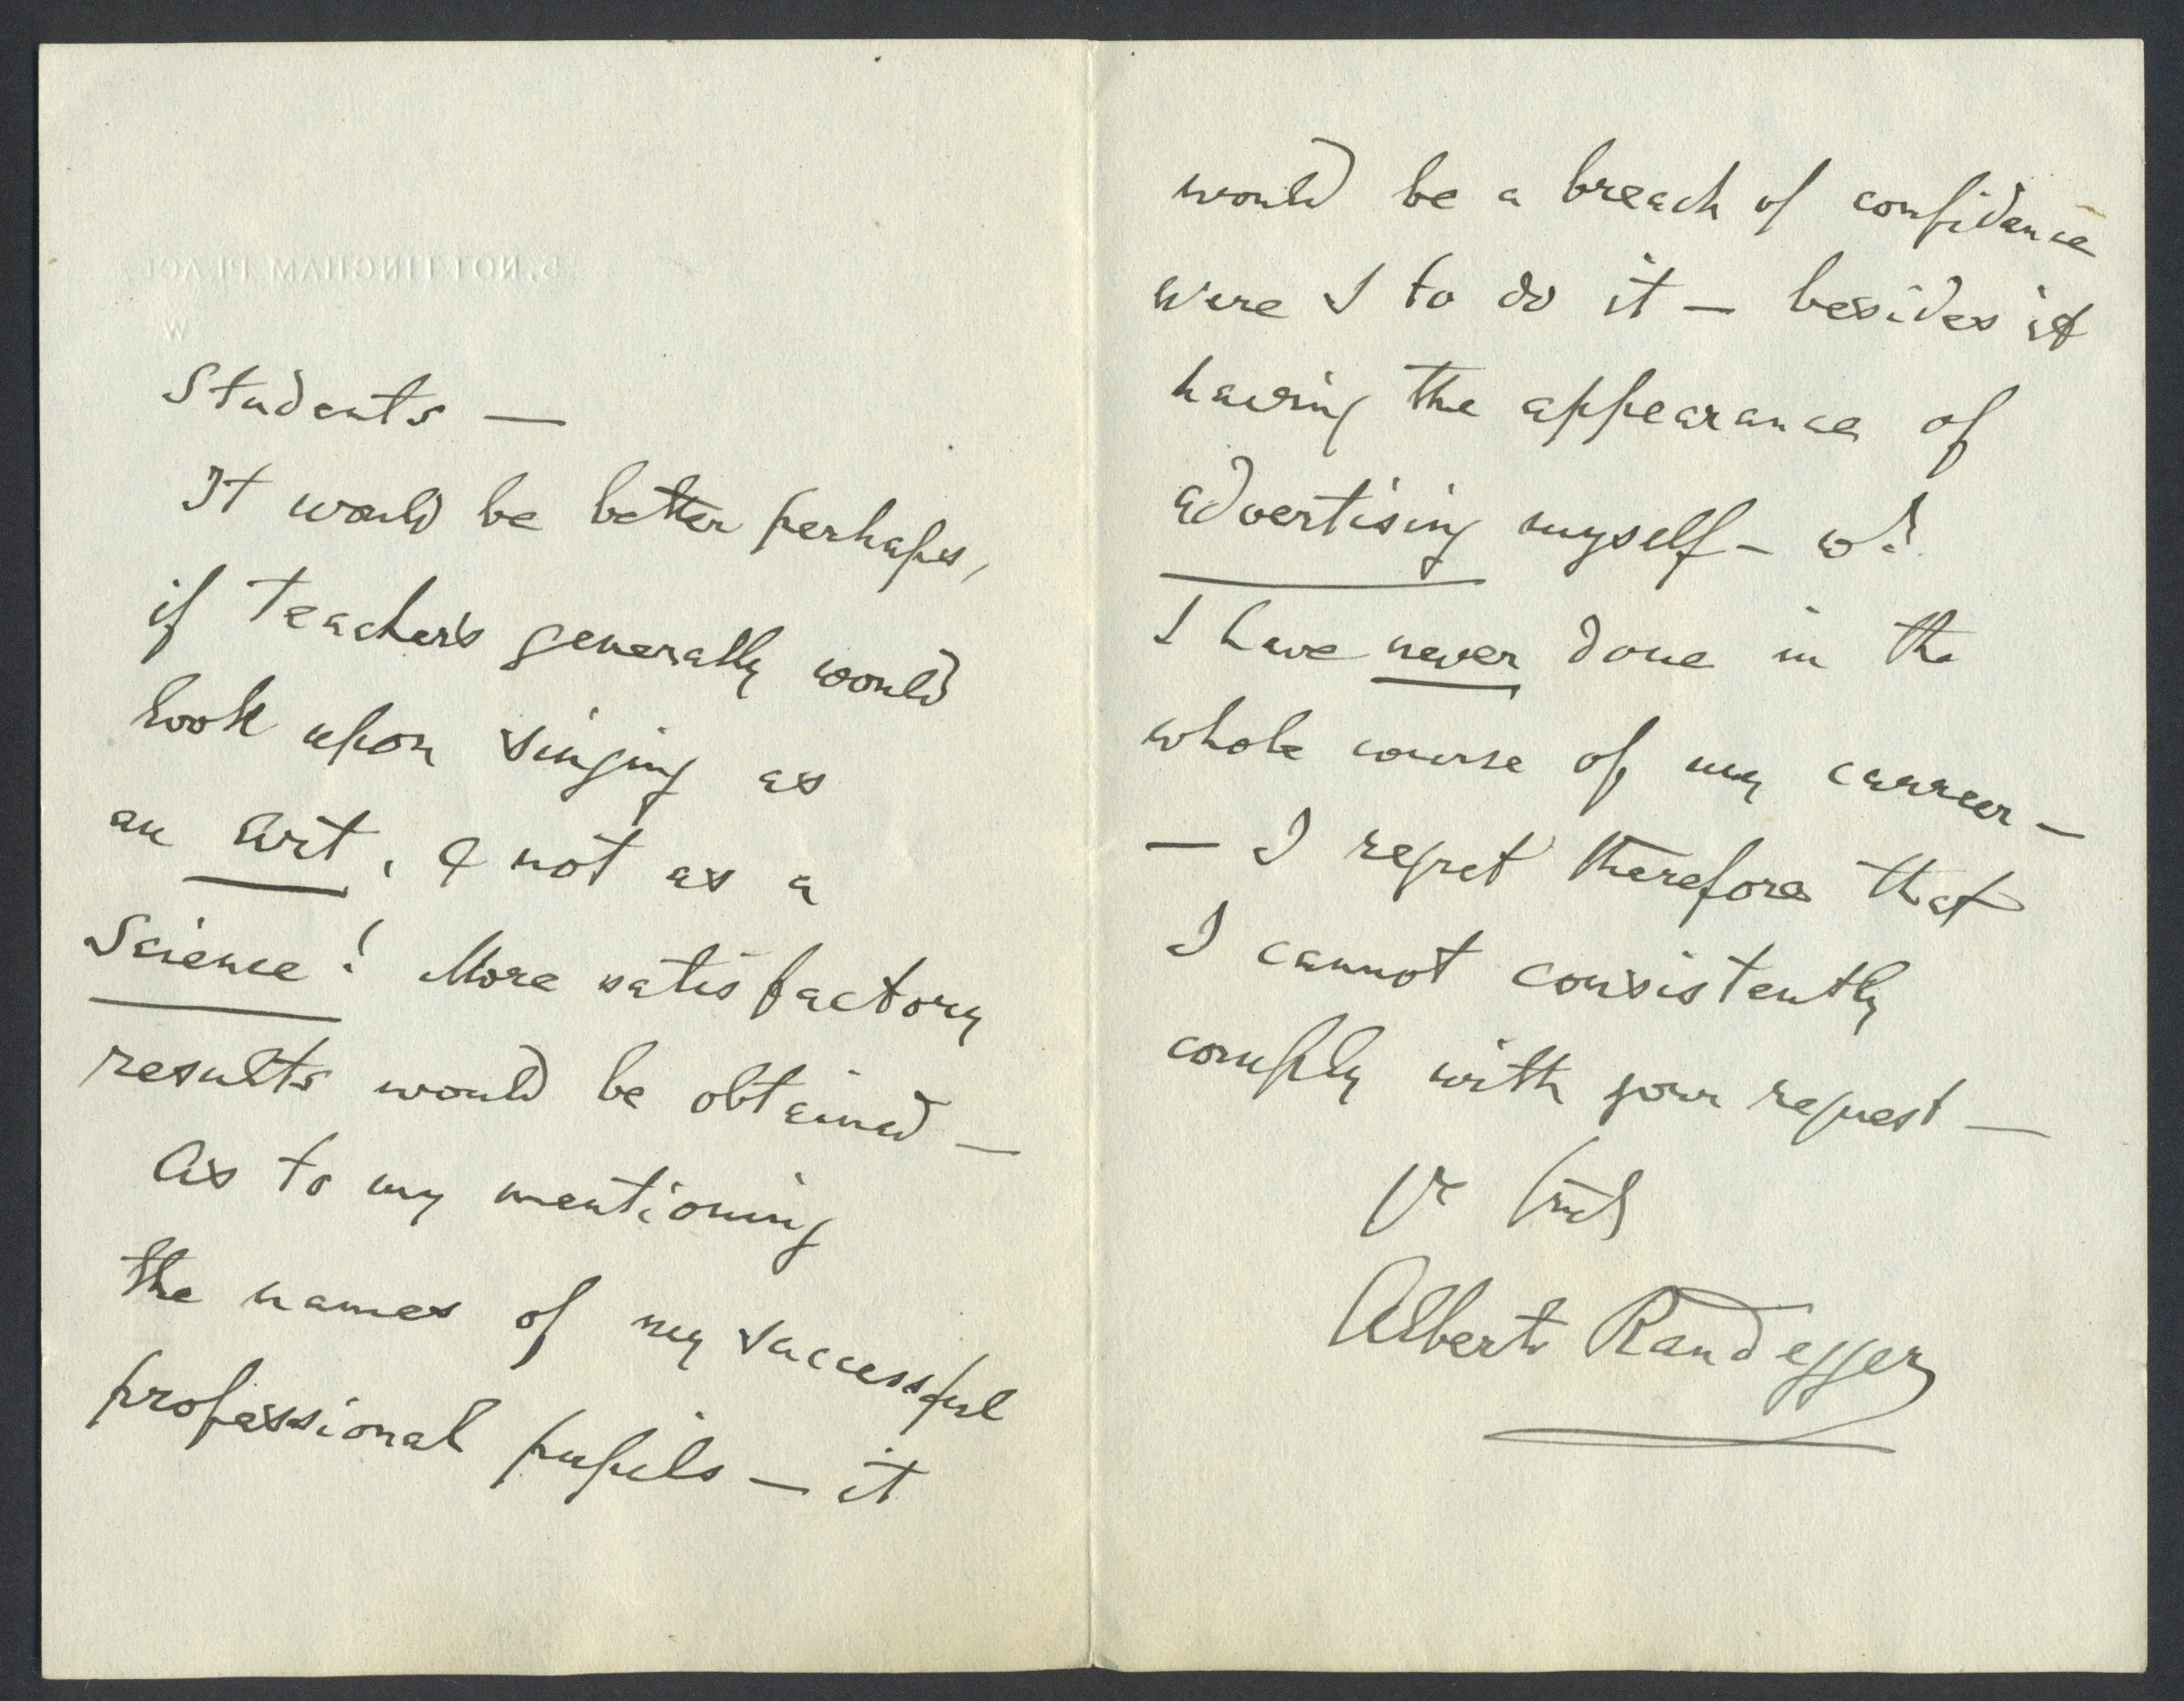 5, NOTTINGHAM PLACE
W
Students —
It would be better perhaps,
if teachers generally would
look upon singing as
an Art, & not as a
Science! More satisfactory
results would be obtained —
As to my mentioning
the names of my successful
professional pupils — it
would be a breach of confidance
were I to do it — besides it
having the appearance of
advertising myself — wd
I have never done in the
whole course of my carreer —
— I regret therefore that
I cannot consistently
comply with your request —
Yr
Alberto Randegger